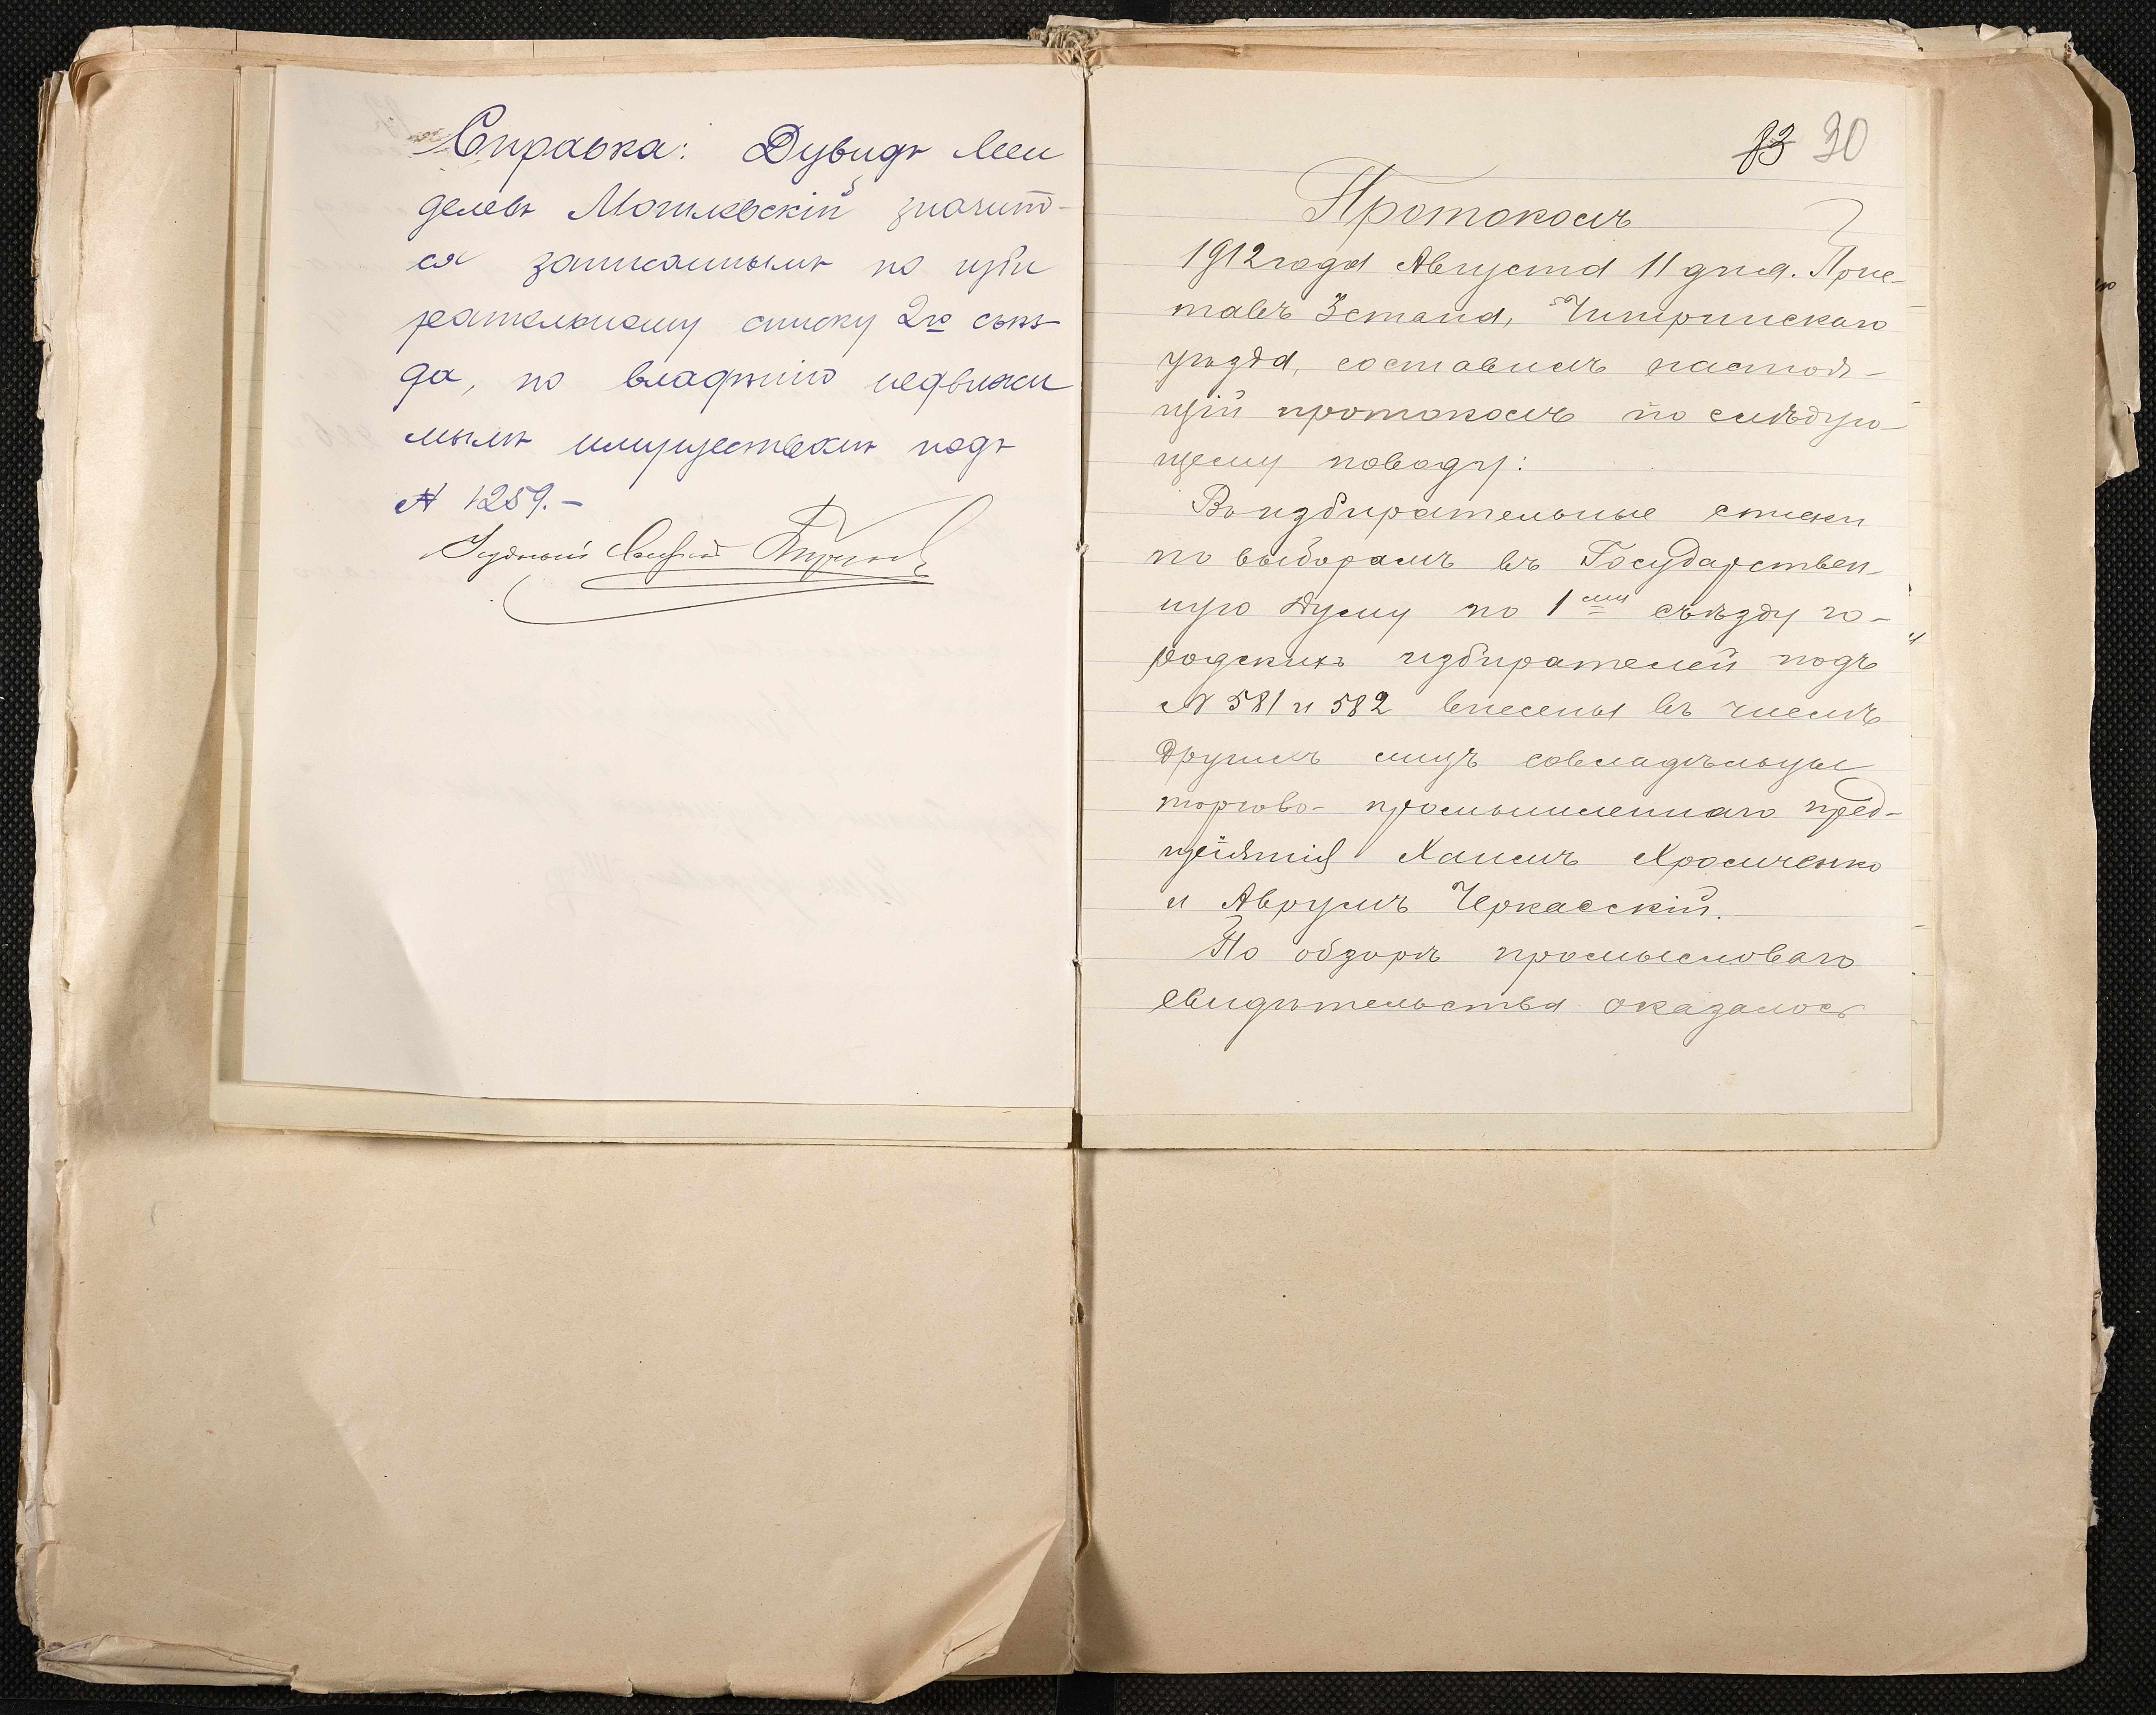 Справка: Дувидъ Мен
делевъ Могилевскій значит-
ся записаннымъ по изби
рательному списку 2го съѣз
да, по владѣнію недвижи
мымъ имуществомъ подъ
№ 1259.-
83 30
Протоколъ
1912 года Августа 11 дня. Прис-
тавъ 3 стана, Чигиринскаго
уѣзда, составилъ настоя-
щій протоколъ по слѣдую-
щему поводу:
Въ избирательные списки
по выборамъ въ Государствен-
ную Думу по 1му съѣзду го-
родскихъ избирателей подъ
№ 581 и 582 внесены въ числѣ
другихъ лицъ совладѣльцы
торгово-промышленнаго пред-
пріятія Хаимъ Кромченко
и Аврумъ Черкасскій.
По обзорѣ промысловаго
свидѣтельства оказалось